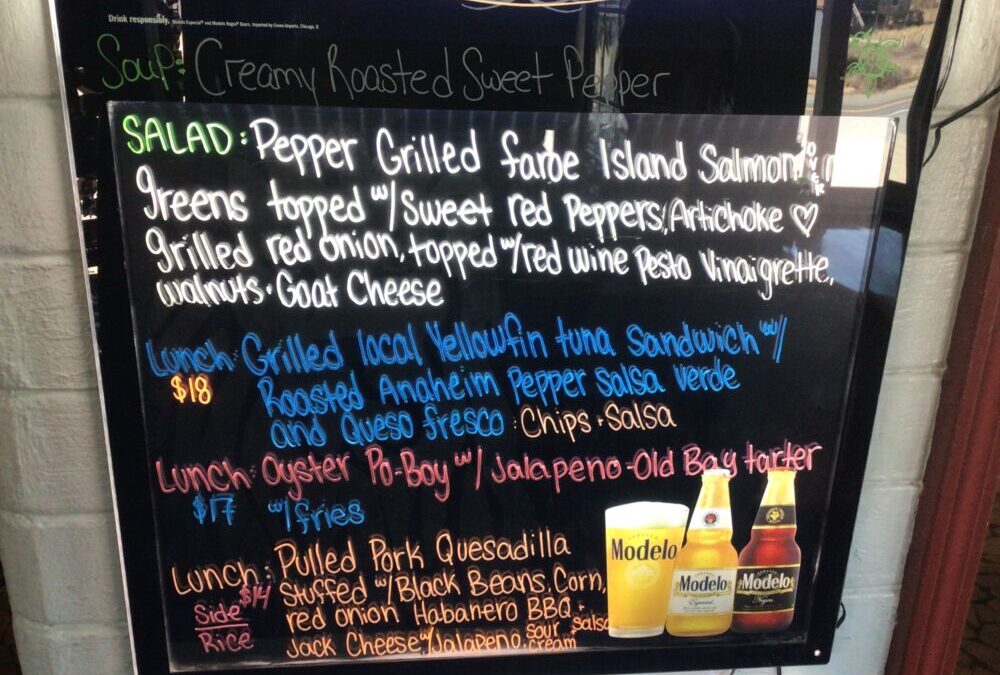 Drink responsibly.
Soup: Creamy Roasted Sweet Pepper
SALAD: Pepper Grilled faroe Island Salmon OVER
greens topped w/ Sweet red Peppers, Artichoke ♡
grilled red onion, topped w/ red wine Pesto Vinaigrette,
walnuts · Goat Cheese
Lunch: Grilled local Yellowfin tuna Sandwich w/
$18 Roasted Anaheim Pepper salsa verde
and Queso fresco : Chips + Salsa
Lunch: Oyster Po-Boy w/ Jalapeno-Old Bay tarter
$17 w/ fries
Lunch: Pulled Pork Quesadilla
$14 Stuffed w/ Black Beans, Corn,
Side red onion Habanero BBQ +
Rice Jack Cheese w/ Jalapeno, sour cream salsa
Modelo
Modelo
Especial
Modelo
Negra